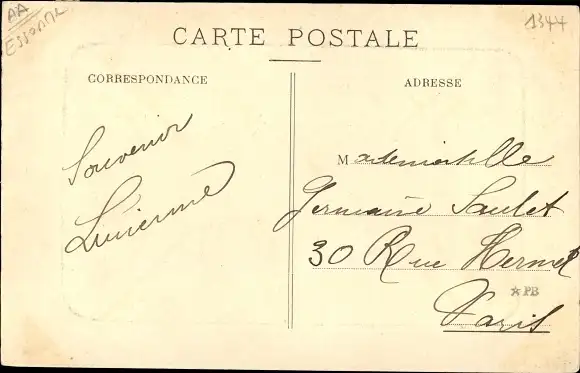 AA
ESSONNE
1344
CARTE POSTALE
CORRESPONDANCE
ADRESSE
Souvenir
Lucienne
Mademoiselle
Germaine Saulet
30 Rue Hermel
Paris
★PB